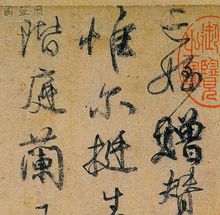 亡姪贈贊
惟尔挺生
階庭蘭